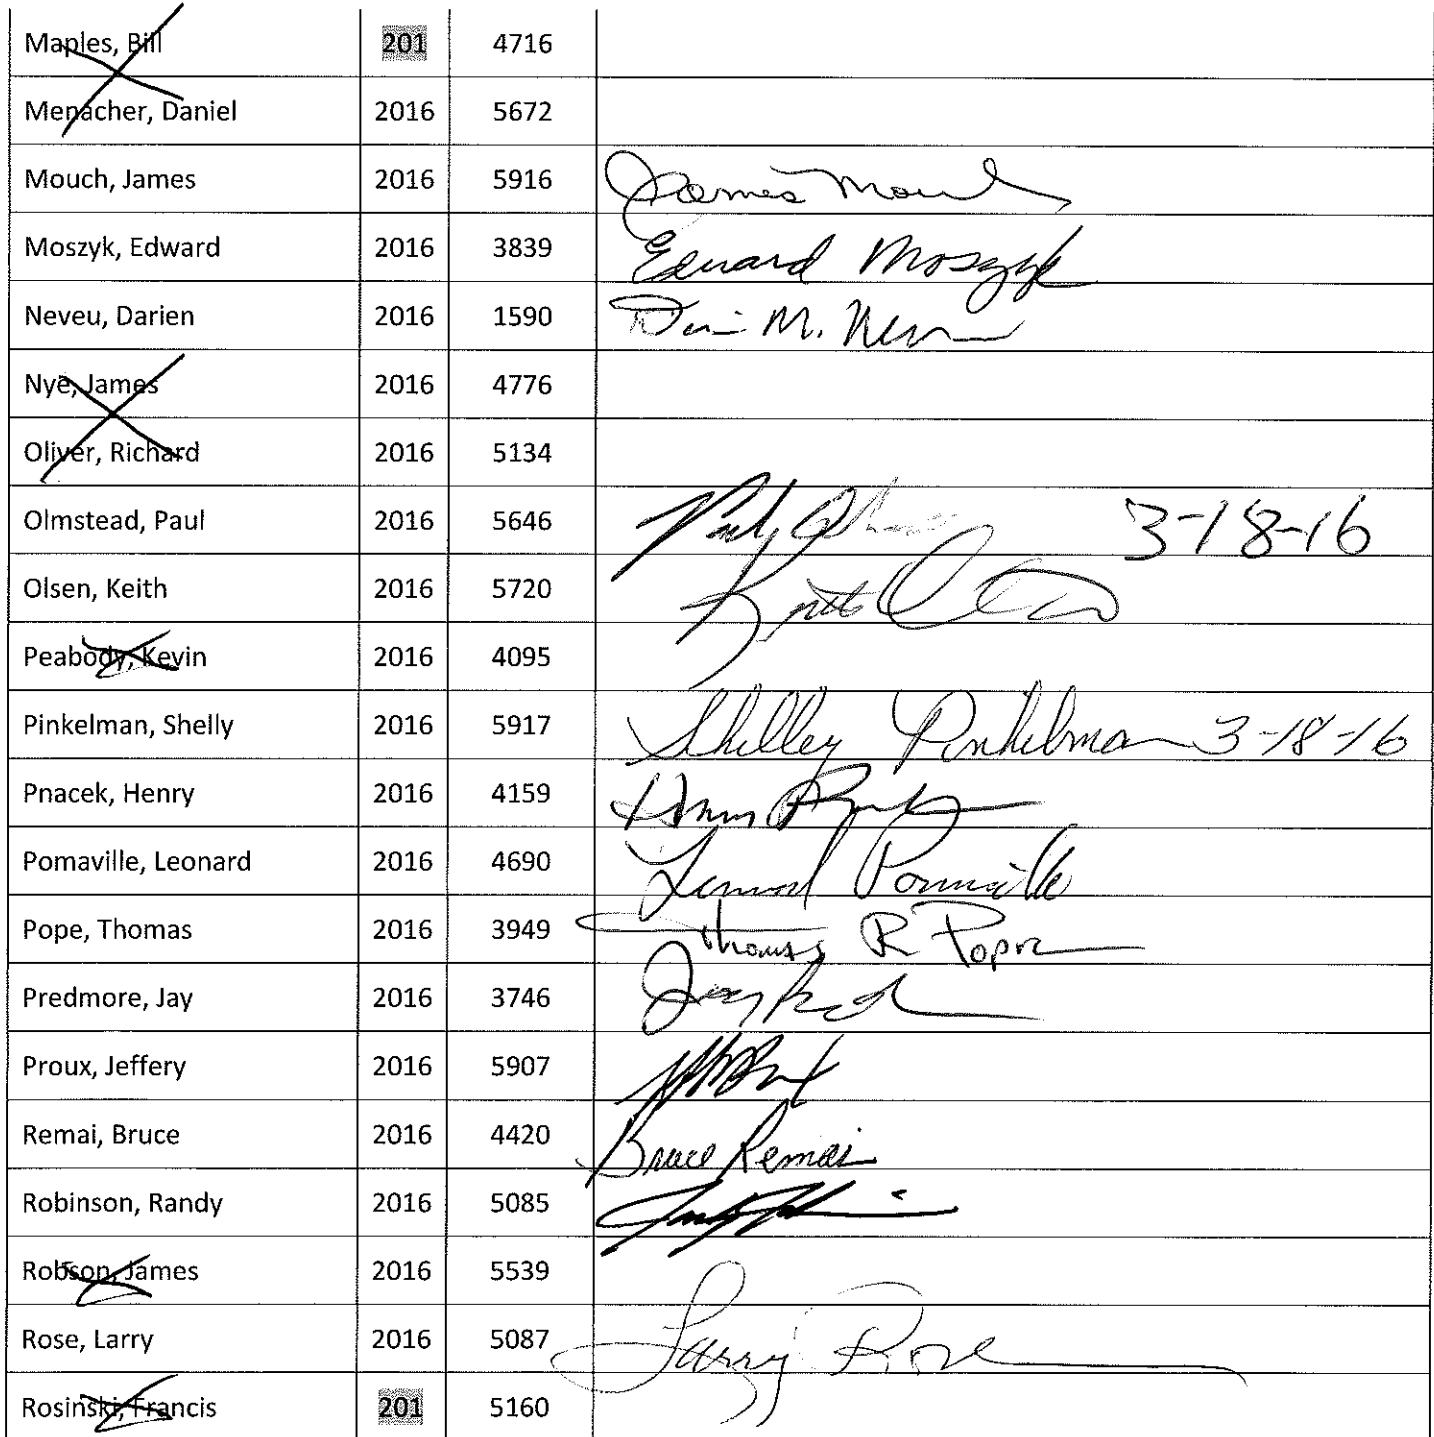 Maples, Bill 201 4716
Menacher, Daniel 2016 5672
Mouch, James 2016 5916 James Mouch
Moszyk, Edward 2016 3839 Edward Moszyk
Neveu, Darien 2016 1590 M.
Nye, James 2016 4776
Oliver, Richard 2016 5134
Olmstead, Paul 2016 5646 3-18-16
Olsen, Keith 2016 5720 Keith Olsen
Peabody, Kevin 2016 4095
Pinkelman, Shelly 2016 5917 Shelley Pinkelman 3-18-16
Pnacek, Henry 2016 4159
Pomaville, Leonard 2016 4690 Leonard Pomaville
Pope, Thomas 2016 3949 Thomas R Pope
Predmore, Jay 2016 3746 Jay
Proux, Jeffery 2016 5907
Remai, Bruce 2016 4420 Bruce Remai
Robinson, Randy 2016 5085
Robson, James 2016 5539
Rose, Larry 2016 5087 Larry Rose
Rosinski, Francis 201 5160